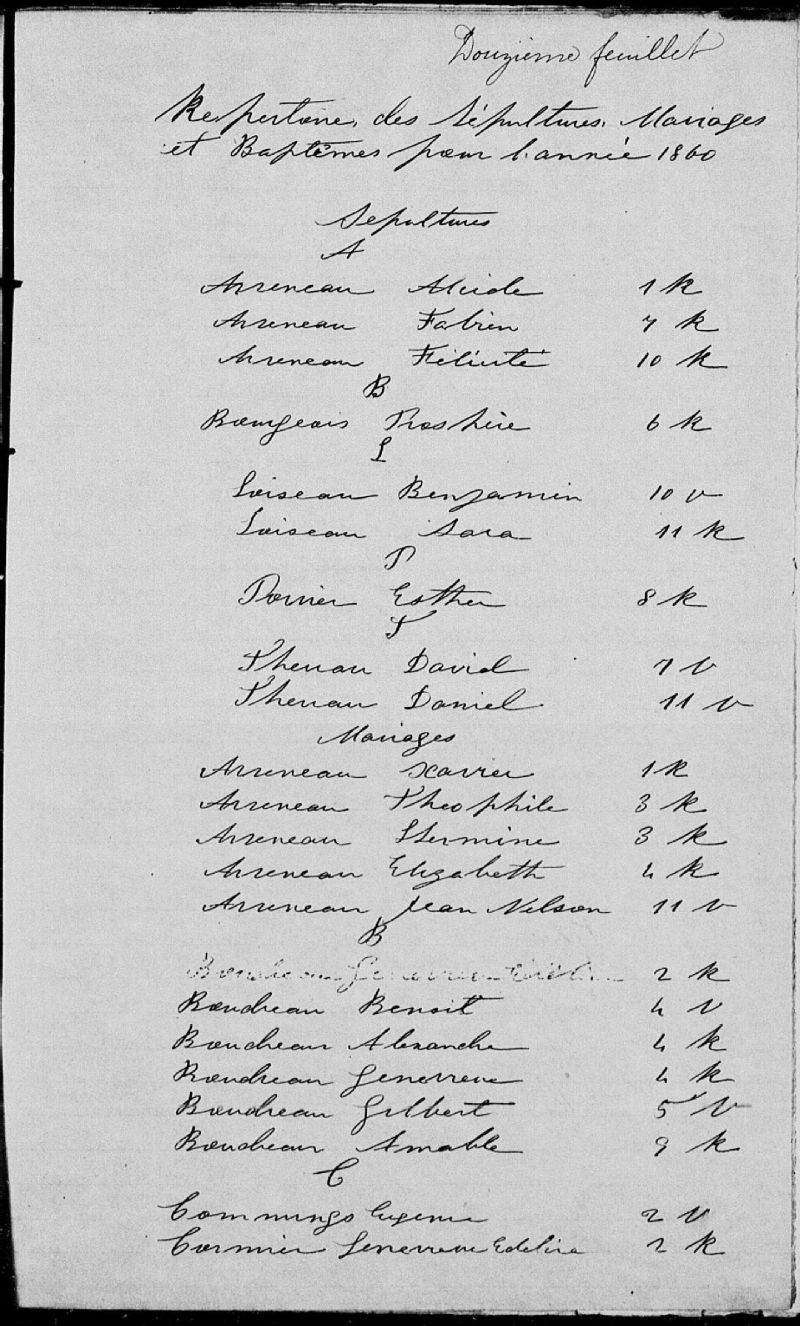 Douzième feuillet
Repertoire des Sépultures, Mariages
et Baptêmes pour l'année 1860
Sepultures
A
Arseneau Alcide 1 R
Arseneau Fabien 7 R
Arseneau Félicité 10 R
B
Bourgeois Prospère 6 R
L
Loiseau Benjamin 10 V
Loiseau Sara 11 R
P
Poirier Esther 8 R
T
Theriau David 7 V
Theriau Daniel 11 V
Mariages
Arseneau Xavier 1 R
Arseneau Theophile 3 R
Arseneau Hermine 3 R
Arseneau Elizabeth 4 R
Arseneau Jean Nelson 11 V
B
Boudreau 2 R
Boudreau Benoit 4 V
Boudreau Alexandre 4 R
Boudreau Genevieve 4 R
Boudreau Gilbert 5 V
Boudreau Amable 9 R
C
Commings Eugenie 2 V
Cormier Genevieve Edelire 2 R